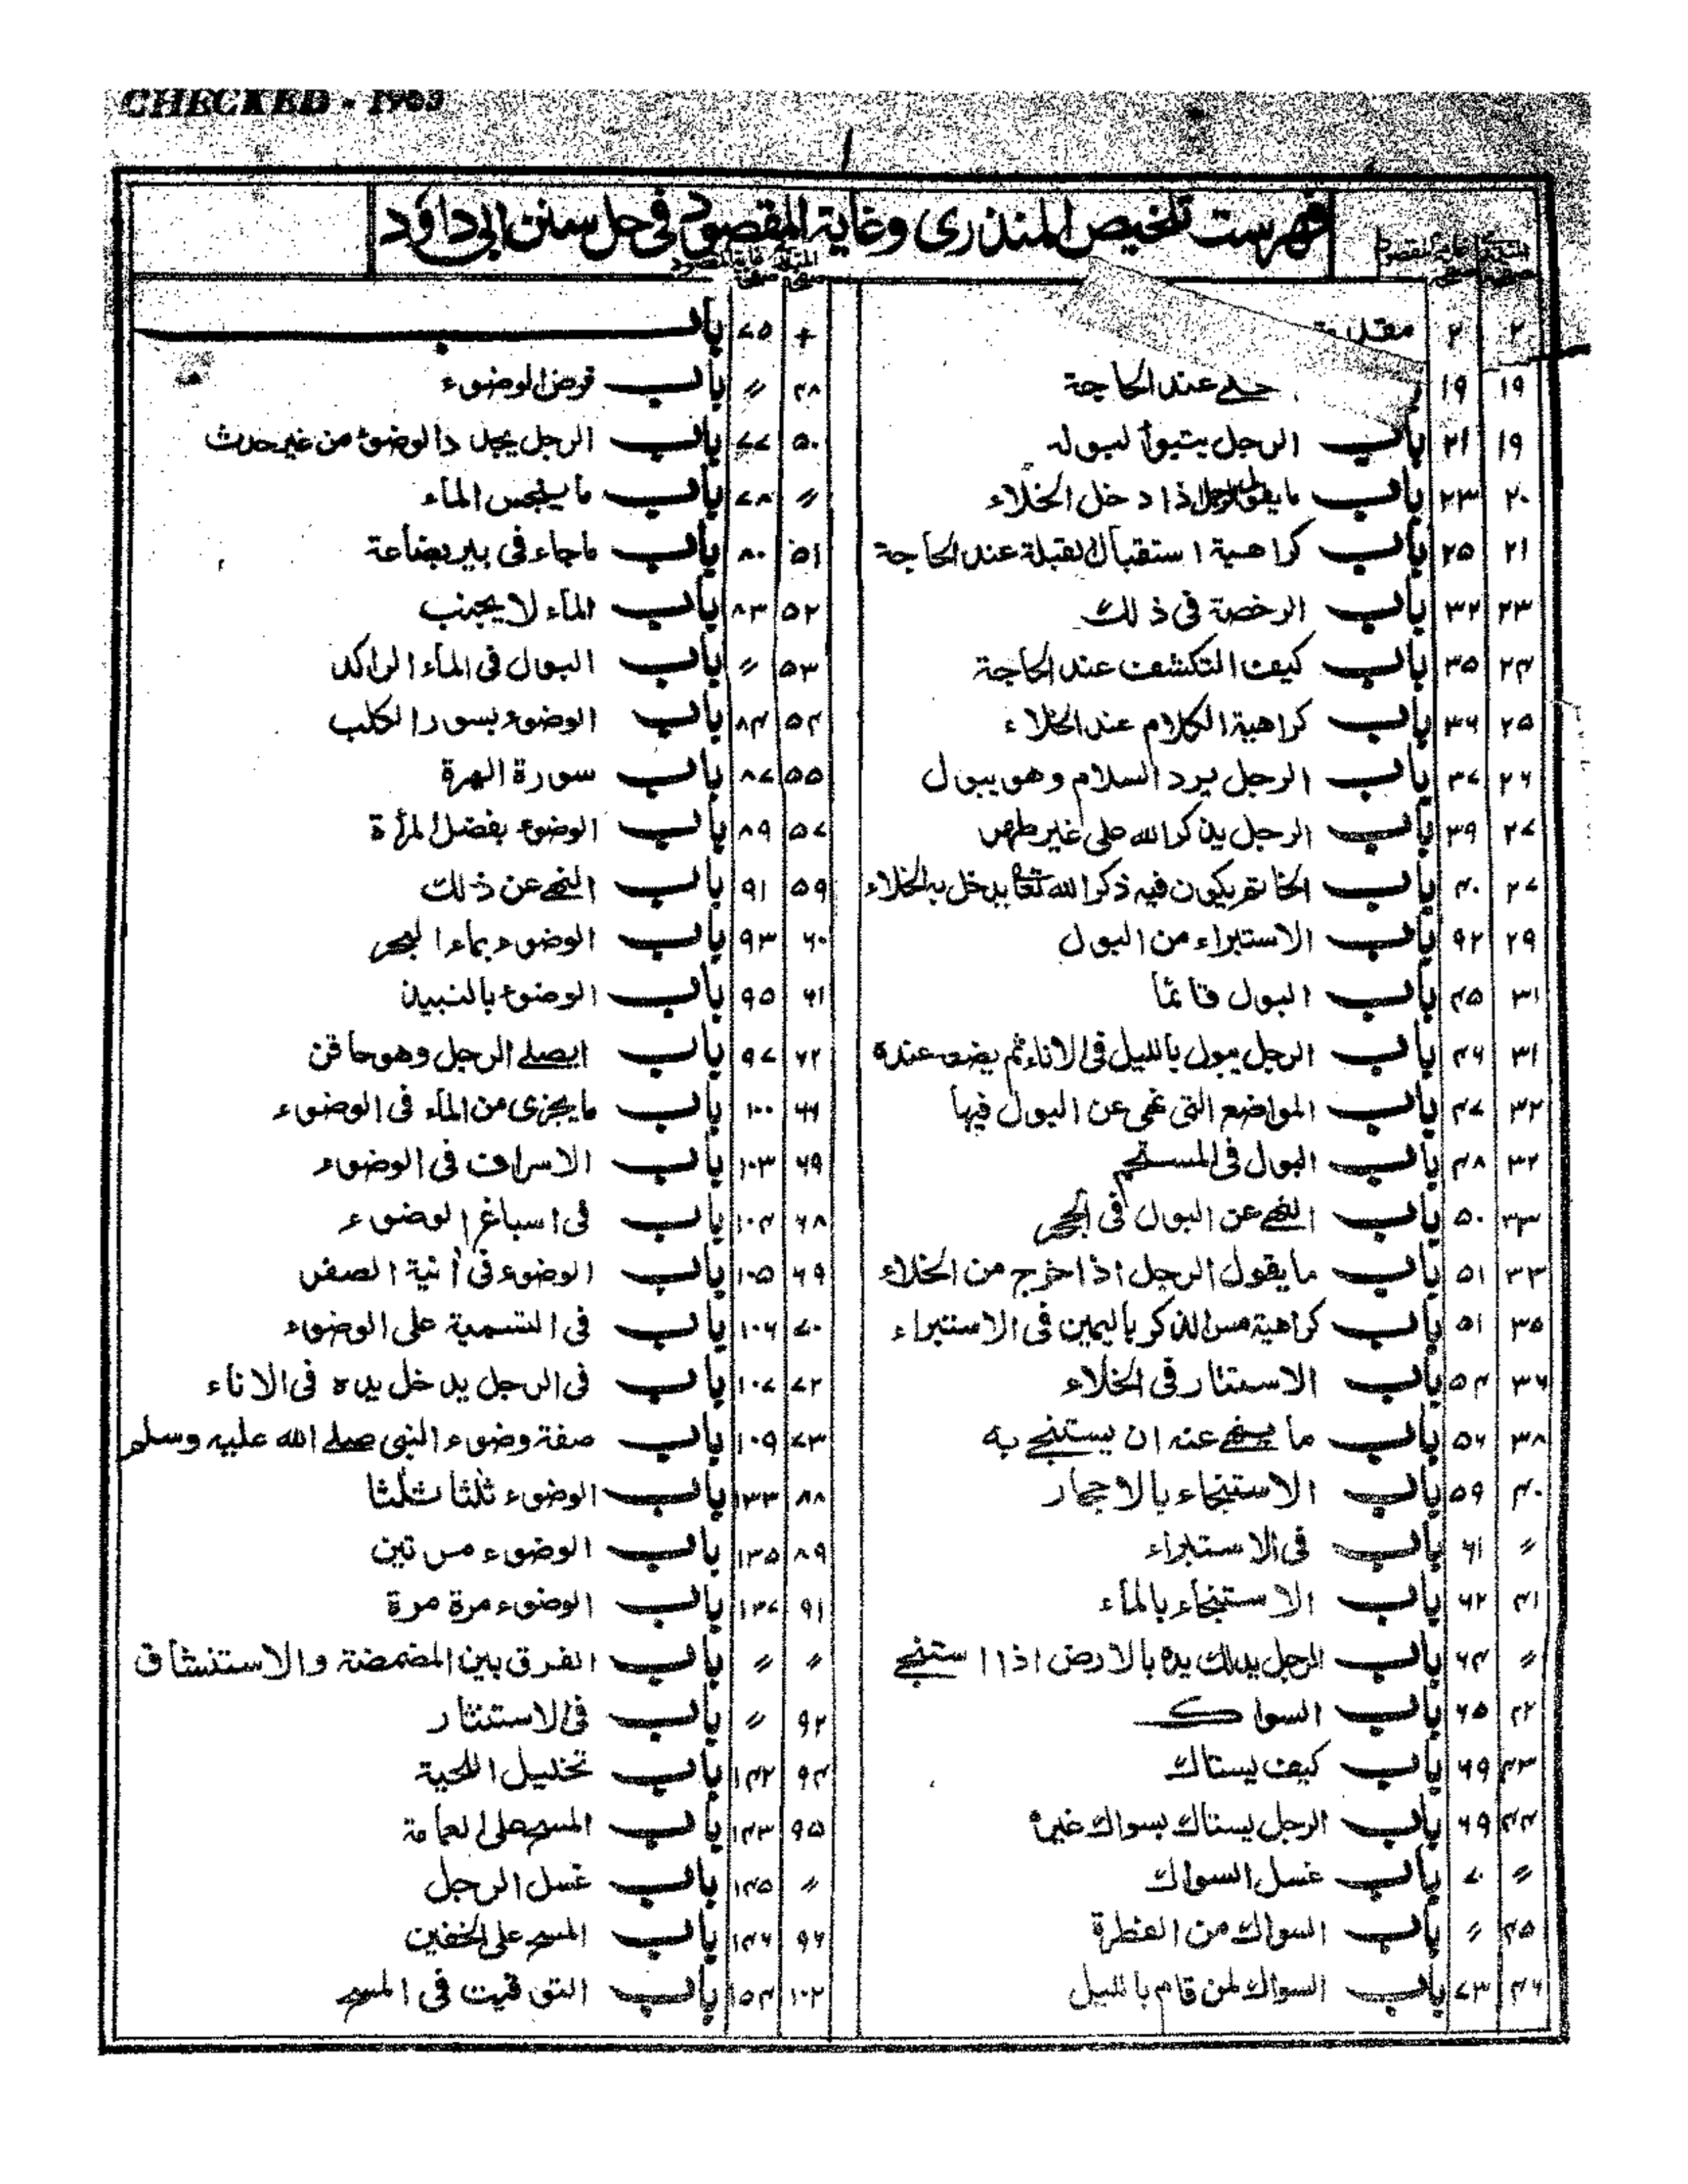 CHECKED - 1963
فهرست تلخيص المنذرى وغاية المقصود فى حل سنن ابى داؤد
٢ ٢ مقدمة
١٩ ١٩ عند الحاجة
١٩ ٢١ باب الرجل يتبوأ لبوله
٢٠ ٢٣ باب ما يقول الرجل اذا دخل الخلاء
٢١ ٢٥ باب كراهية استقبال القبلة عند الحاجة
٢٣ ٣٢ باب الرخصة فى ذلك
٢٤ ٣٥ باب كيف التكشف عند الحاجة
٢٥ ٣٦ باب كراهية الكلام عند الخلاء
٢٦ ٣٧ باب الرجل يرد السلام وهو يبول
٢٧ ٣٩ باب الرجل يذكر الله على غير طهر
٢٧ ٤٠ باب الخاتم يكون فيه ذكر الله تعالى يدخل به الخلاء
٢٩ ٩٢ باب الاستبراء من البول
٣١ ٤٥ باب البول قائما
٣١ ٤٦ باب الرجل يبول بالليل فى الاناء ثم يضعه عنده
٣٢ ٤٧ باب المواضع التى نهى عن البول فيها
٣٢ ٤٨ باب البول فى المستحم
٣٣ ٥٠ باب النهى عن البول فى الجحر
٣٣ ٥١ باب ما يقول الرجل اذا خرج من الخلاء
٣٥ ٥١ باب كراهية مس الذكر باليمين فى الاستبراء
٣٦ ٥٤ باب الاستتار فى الخلاء
٣٨ ٥٦ باب ما ينهى عنه ان يستنجى به
٤٠ ٥٩ باب الاستنجاء بالاحجار
〃 ٦١ باب فى الاستبراء
٤١ ٦٢ باب الاستنجاء بالماء
〃 ٦٤ باب الرجل يدلك يده بالارض اذا استنجى
٤٢ ٦٥ باب السواك
٤٣ ٦٩ باب كيف يستاك
٤٤ ٦٩ باب الرجل يستاك بسواك غيره
〃 ٧٠ باب غسل السواك
٤٥ 〃 باب السواك من الفطرة
٤٦ ٧٣ باب السواك لمن قام بالليل
+ ٧٥ باب
٤٨ 〃 باب فرض الوضوء
٥٠ ٧٧ باب الرجل يجدد الوضوء من غير حدث
〃 ٧٨ باب ما ينجس الماء
٥١ ٨٠ باب ماجاء فى بير بضاعة
٥٢ ٨٣ باب الماء لا يجنب
٥٣ 〃 باب البول فى الماء الراكد
٥٤ ٨٤ باب الوضوء بسور الكلب
٥٥ ٨٧ باب سورة الهرة
٥٧ ٨٩ باب الوضوء بفضل المرأة
٥٩ ٩١ باب النهى عن ذلك
٦٠ ٩٣ باب الوضوء بماء البحر
٦١ ٩٥ باب الوضوء بالنبيذ
٦٢ ٩٧ باب ايصلى الرجل وهو حاقن
٦٦ ١٠٠ باب ما يجزى من الماء فى الوضوء
٦٩ ١٠٣ باب الاسراف فى الوضوء
٦٨ ١٠٤ باب فى اسباغ الوضوء
٦٩ ١٠٥ باب الوضوء فى أنية الصفر
٧٠ ١٠٦ باب فى التسمية على الوضوء
٧٢ ١٠٧ باب فى الرجل يدخل يده فى الاناء
٧٣ ١٠٩ باب صفة وضوء النبى صلى الله عليه وسلم
٨٨ ١٣٣ باب الوضوء ثلثا ثلثا
٨٩ ١٣٥ باب الوضوء مرتين
٩١ ١٣٧ باب الوضوء مرة مرة
〃 〃 باب الفرق بين المضمضة والاستنشاق
٩٢ 〃 باب فى الاستنثار
٩٤ ١٤٢ باب تخليل اللحية
٩٥ ١٤٣ باب المسح على العمامة
〃 ١٤٥ باب غسل الرجل
٩٦ ١٤٦ باب المسح على الخفين
١٠٢ ١٥٤ باب التوقيت فى المسح